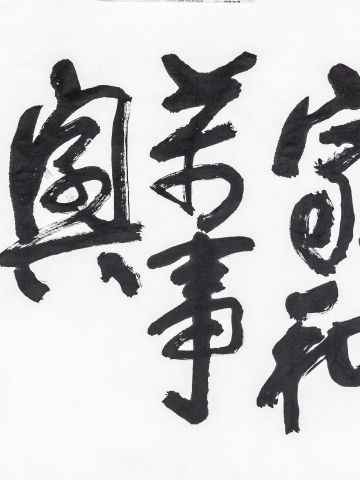 家和
萬事
興